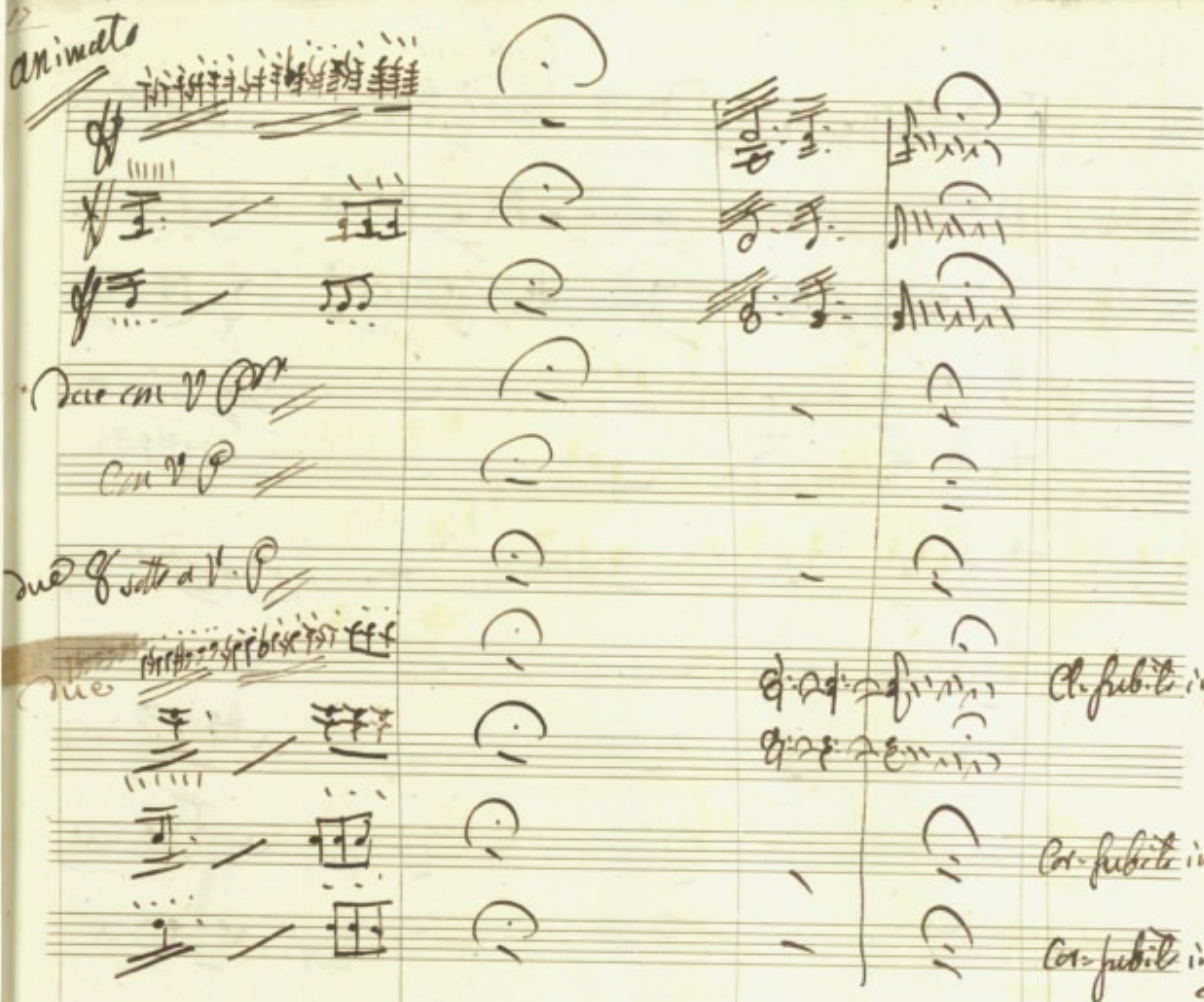 animato
due con V P
Con V P
due 8 sotto a V. P
due
Cl. subito in
Cor. subito in
Cor. subito in